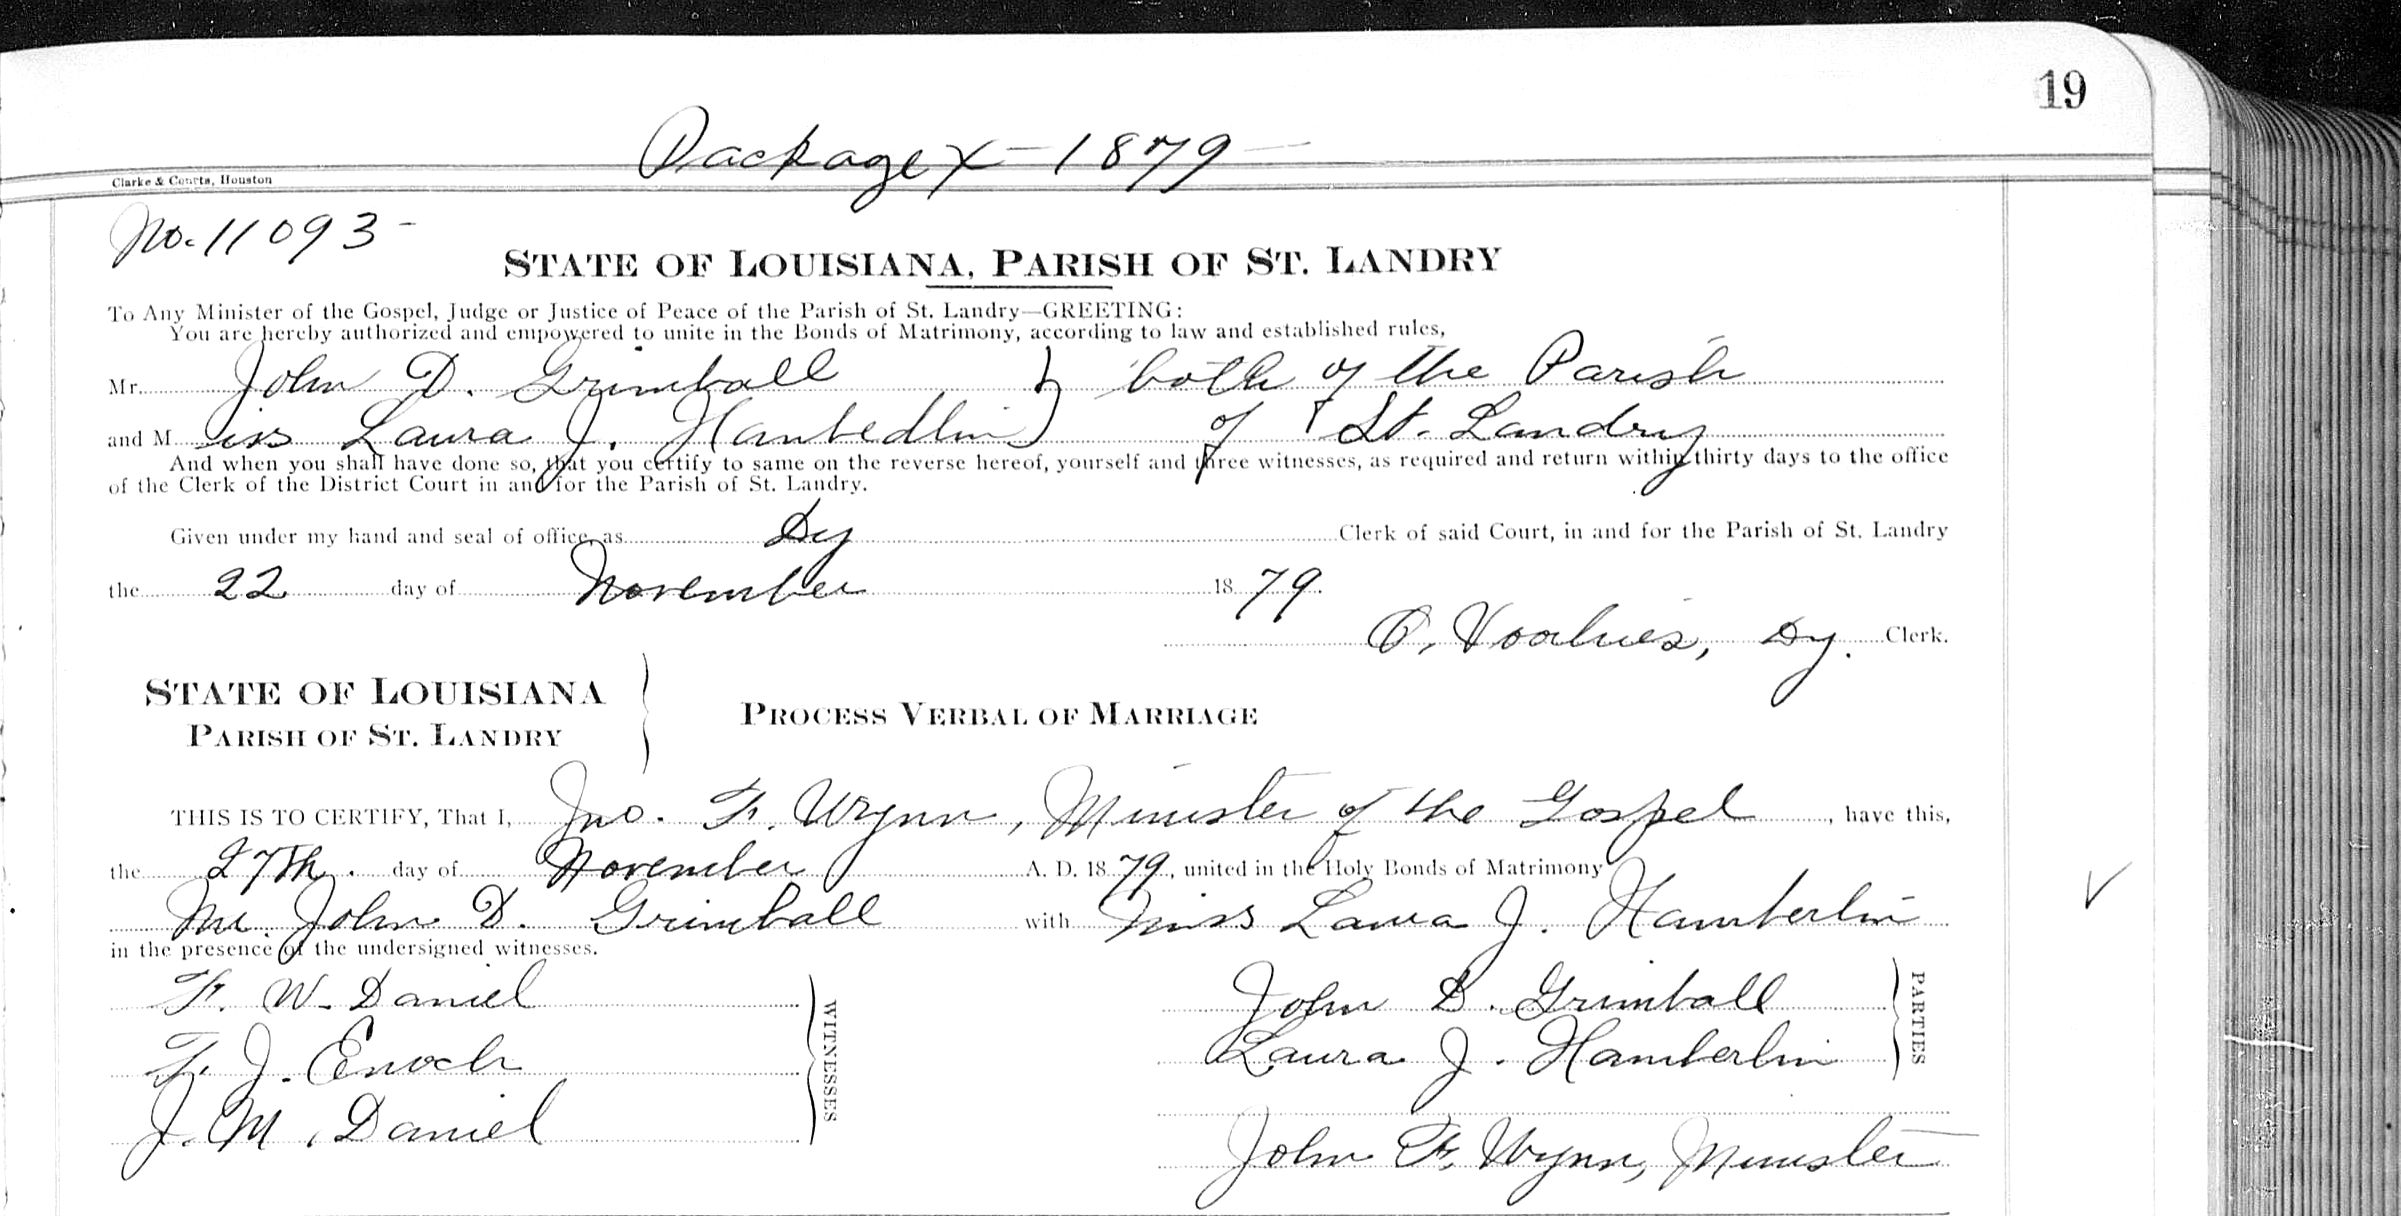 19
Package X — 1879 —
Clarke & Courts, Houston
No. 11093 -
STATE OF LOUISIANA, PARISH OF ST. LANDRY
To Any Minister of the Gospel, Judge or Justice of Peace of the Parish of St. Landry—GREETING:
You are hereby authorized and empowered to unite in the Bonds of Matrimony, according to law and established rules,
Mr. John D. Grimball } both of the Parish
and Miss Laura J. Hambedlin } of St. Landry
And when you shall have done so, that you certify to same on the reverse hereof, yourself and three witnesses, as required and return within thirty days to the office
of the Clerk of the District Court in and for the Parish of St. Landry.
Given under my hand and seal of office, as Dy Clerk of said Court, in and for the Parish of St. Landry
the 22 day of November 1879.
O. Voorhies, Dy. Clerk.
STATE OF LOUISIANA
PARISH OF ST. LANDRY
PROCESS VERBAL OF MARRIAGE
THIS IS TO CERTIFY, That I, Jno. F. Wynn, Minister of the Gospel, have this,
the 27th. day of November A. D. 1879, united in the Holy Bonds of Matrimony
Mr. John D. Grimball with Miss Laura J. Hamberlin
in the presence of the undersigned witnesses.
F. W. Daniel
F. J. Enoch
J. M. Daniel
WITNESSES
John D. Grimball
Laura J. Hamberlin
PARTIES
John F. Wynn, Minister